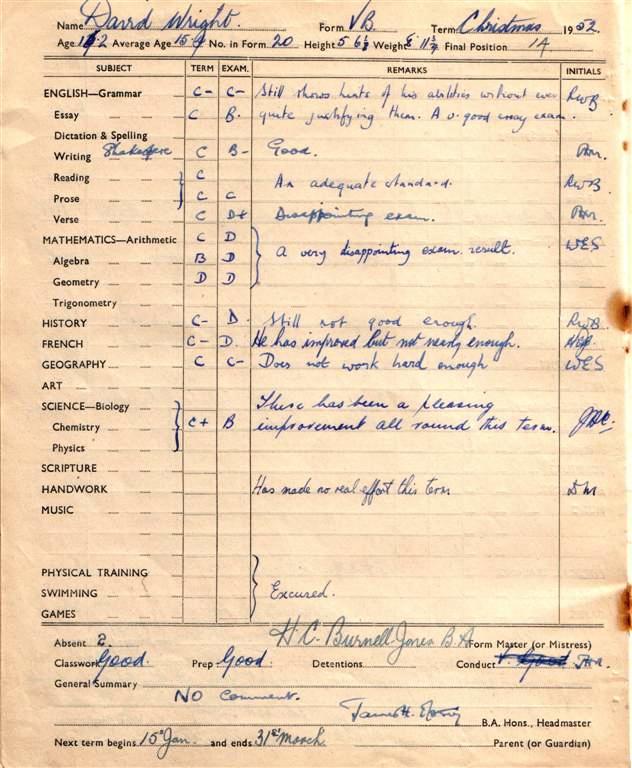 Name David Wright. Form VB. Term Christmas 1952.
Age 15.2 Average Age 15.9 No. in Form 20 Height 5 6½ Weight 8 11¾ Final Position 14
SUBJECT TERM EXAM. REMARKS INITIALS
ENGLISH—Grammar C- C- Still shows hints of his abilities without ever RWB
Essay C B. quite justifying them. A v. good essay exam.
Dictation & Spelling
Writing Shakespeare C B- Good.
Reading C
An adequate standard. RWB
Prose C C
Verse C D+ Disappointing exam.
MATHEMATICS—Arithmetic C D WES
A very disappointing exam. result.
Algebra B D
Geometry D D
Trigonometry
HISTORY C- D. Still not good enough. RWB
FRENCH C- D. He has improved but not nearly enough.
GEOGRAPHY C C- Does not work hard enough WES
ART
SCIENCE—Biology There has been a pleasing
Chemistry C+ B improvement all round this term.
Physics
SCRIPTURE
HANDWORK Has made no real effort this term DM
MUSIC
PHYSICAL TRAINING
SWIMMING Excused.
GAMES
Absent 2. H C. Burnell-Jones B.A Form Master (or Mistress)
Classwork Good. Prep Good. Detentions Conduct V. Good
General Summary
No Comment.
B.A. Hons., Headmaster
Next term begins 15th Jan. and ends 31st March. Parent (or Guardian)